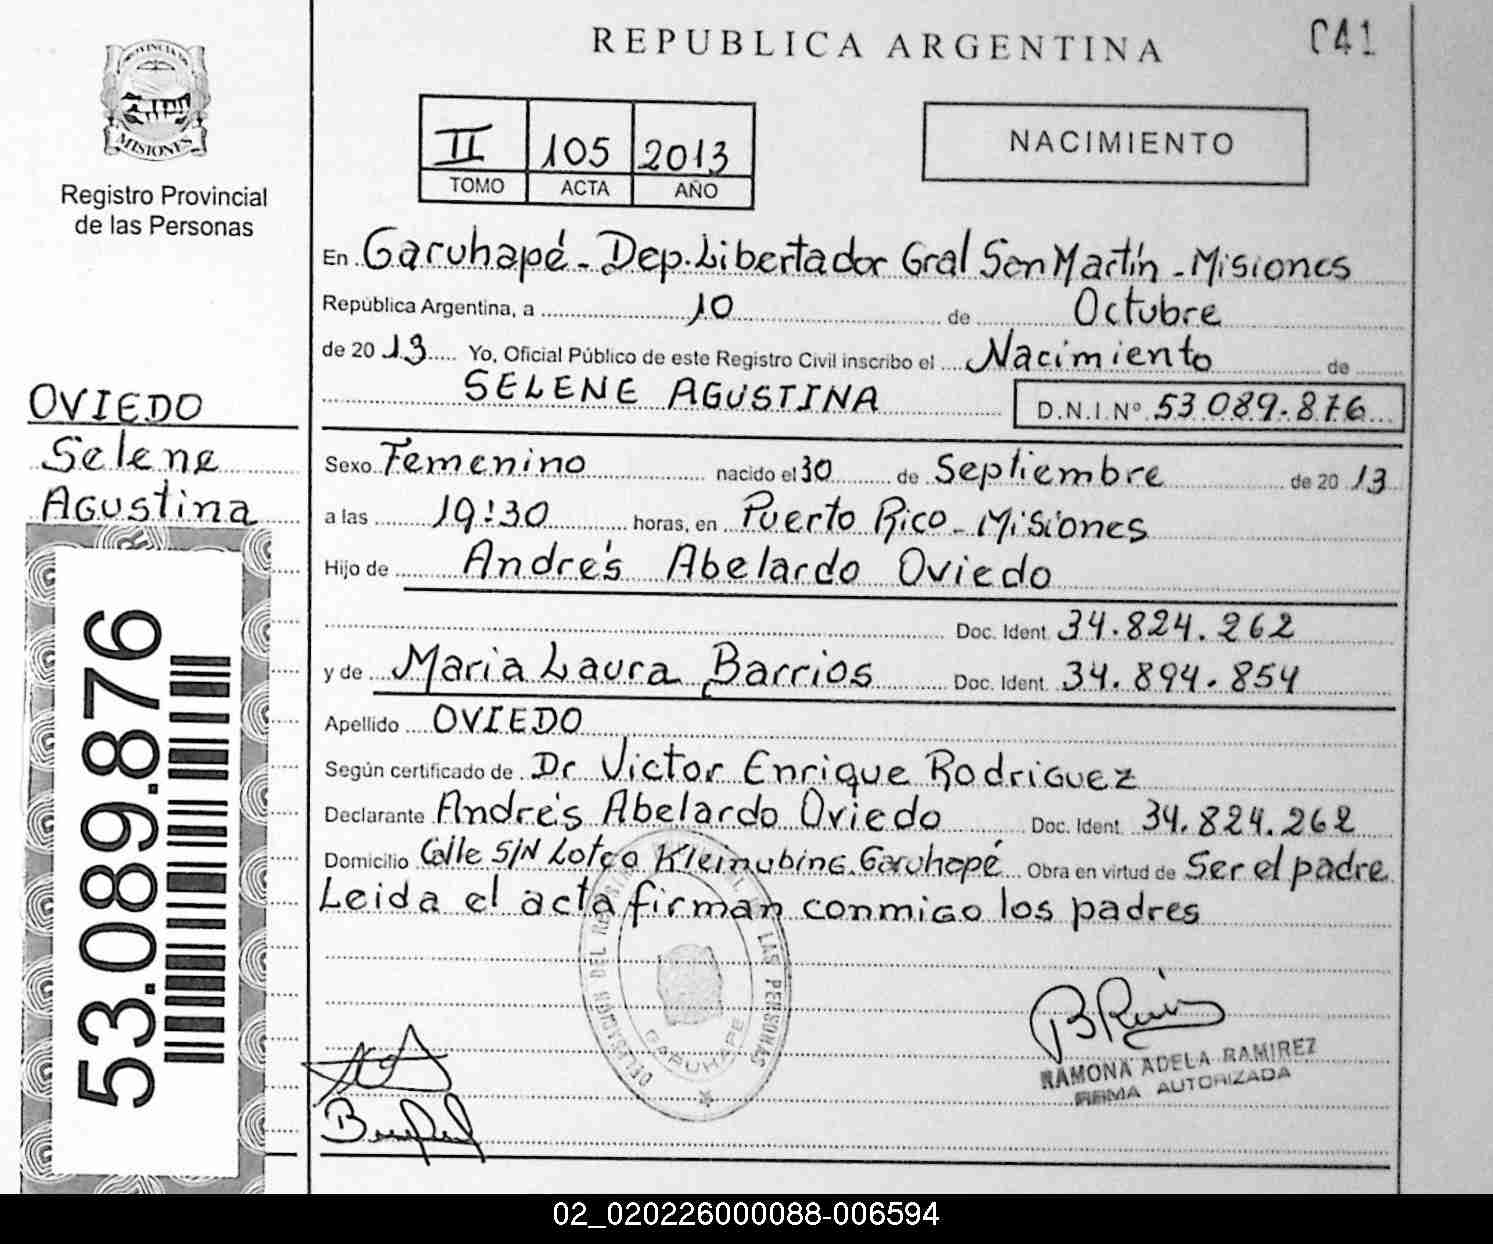 REPUBLICA ARGENTINA
041
PROVINCIA
MISIONES
Registro Provincial
de las Personas
II 105 2013
TOMO ACTA AÑO
NACIMIENTO
En Garuhapé - Dep. Libertador Gral San Martín - Misiones
República Argentina, a 10 de Octubre
de 2013 Yo, Oficial Público de este Registro Civil inscribo el Nacimiento de
SELENE AGUSTINA D.N.I.Nº 53 089.876
OVIEDO
Selene
Agustina
Sexo Femenino nacido el 30 de Septiembre de 2013
a las 19:30 horas, en Puerto Rico - Misiones
Hijo de Andrés Abelardo Oviedo
Doc. Ident. 34.824.262
y de Maria Laura Barrios Doc. Ident. 34.894.854
Apellido OVIEDO
Según certificado de Dr Victor Enrique Rodriguez
Declarante Andrés Abelardo Oviedo Doc. Ident. 34.824.262
Domicilio Calle S/N Loteo Kleinubing. Garuhapé Obra en virtud de Ser el padre
Leida el acta firman conmigo los padres
53.089.876
DELEGACION DEL LAS PERSONAS
GARUHAPE
RAMONA ADELA RAMIREZ
FIRMA AUTORIZADA
02_020226000088-006594